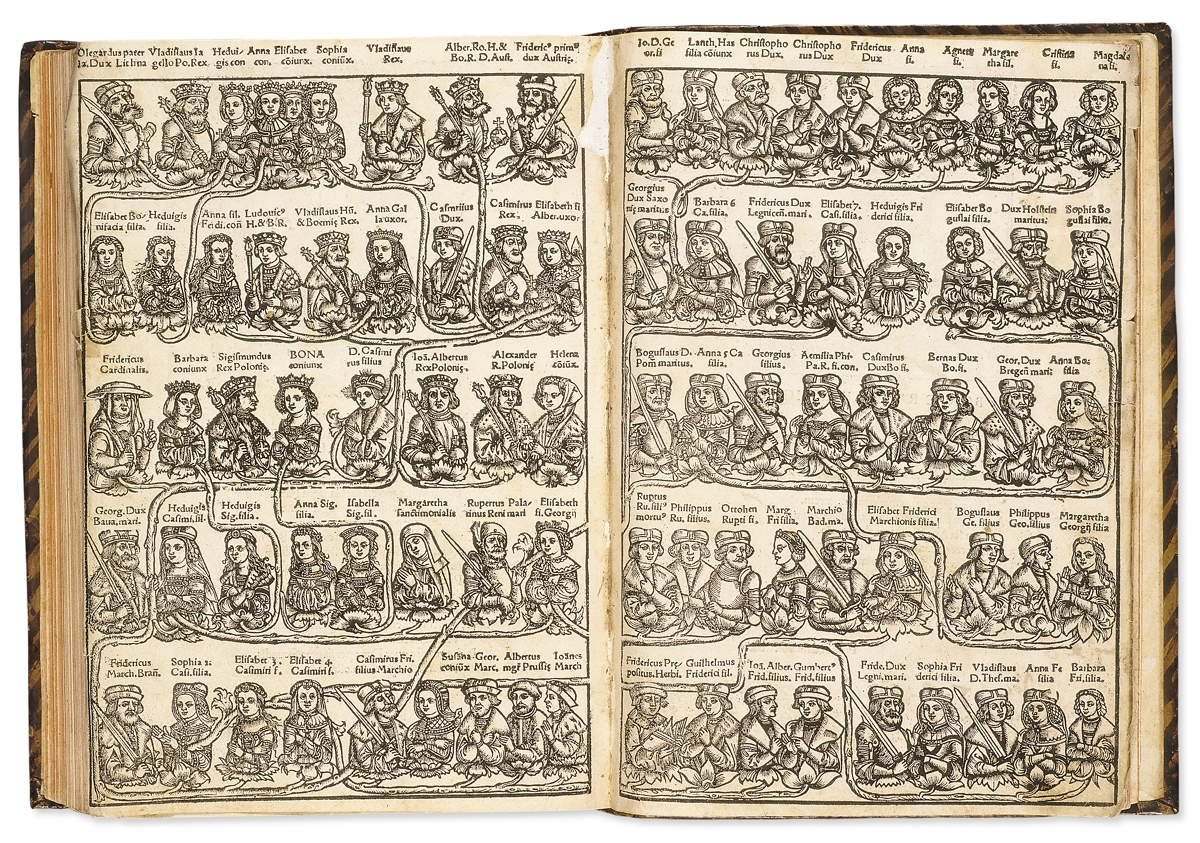 Olegardus pater Vladislaus Ia Hedui- Anna Elisabet Sophia Vladislaus Alber. Ro. H. & Frideric⁹ prim⁹
Ia. Dux Lithua gello Po. Rex. gis con con. cõiunx. coniũx. Rex. Bo. R. D. Aust. dux Austrię.
Elisabet Bo- Heduigis Anna fil. Ludouic⁹ Vladislaus Hũ. Anna Gal Casmirius Casimirus Elisabeth fi
nifacia filia. filia. Fridi. coñ H. & B. R. & Boemię Rex. la uxor. Dux. Rex. Alber. uxor
Fridericus Barbara Sigismundus BONA D. Casimi Ioã. Albertus Alexander Helena
Cardinalis. coniunx Rex Polonię. coniunx rus filius Rex Polonię. R. Polonię cõiũx.
Georg. Dux Heduigis Heduigis Anna Sig. Isabella Margaretha Rupertus Pala- Elisabeth
Baua. mari. Casimi. fil. Sig. filia. filia. Sig. fil. sanctimonialis tinus Reni mari fi. Georgij
Fridericus Sophia 2. Elisabet 3. Elisabet 4. Casimirus Fri. Susana Geor. Albertus Ioãnes
March. Brañ. Casi. filia. Casimiri f. Casimiri f. filius Marchio coniũx Marc. mgr̃ Prussię March
Io. D. Ge Lanth. Has Christopho Christopho Fridericus Anna Agnes Margare Cristina Magdale
or. fi filia cõiunx rus Dux. rus Dux Dux fi. fi. tha fil. fi. na fi.
Georgius
Dux Saxo Barbara 6 Fridericus Dux Elisabet 7. Heduigis Fri Elisabet Bo Dux Holstein Sophia Bo
nię maritus. Ca. filia. Legnicẽn. mari. Casi. filia. derici filia guslai filia. maritus. guslai filia.
Boguslaus D. Anna 5 Ca Georgius Aemilia Phi- Casimirus Bernas Dux Geor. Dux Anna Bo:
Pom̃ maritus. filia. filius. Pa. R. fi. con. Dux Bo fi. Bo. fi. Bregeñ mari: filia
Ruptus
Ru. fili⁹ Philippus Ottohen Marg. Marchio Elisabet Friderici Boguslaus Philippus Margaretha
mortu⁹ Ru. filius. Rupti fi. Fri filia. Bad. ma. Marchionis filia. Ge. filius Geo. filius Georgij filia
Fridericus Prę- Guilhelmus Ioã. Alber. Gumbert⁹ Fride. Dux Sophia Fri Vladislaus Anna Fe Barbara
positus. Herbi. Friderici fil. Frid. filius. Frid. filius Legni. mari. derici filia. D. Thes. ma. filia Fri. filia.